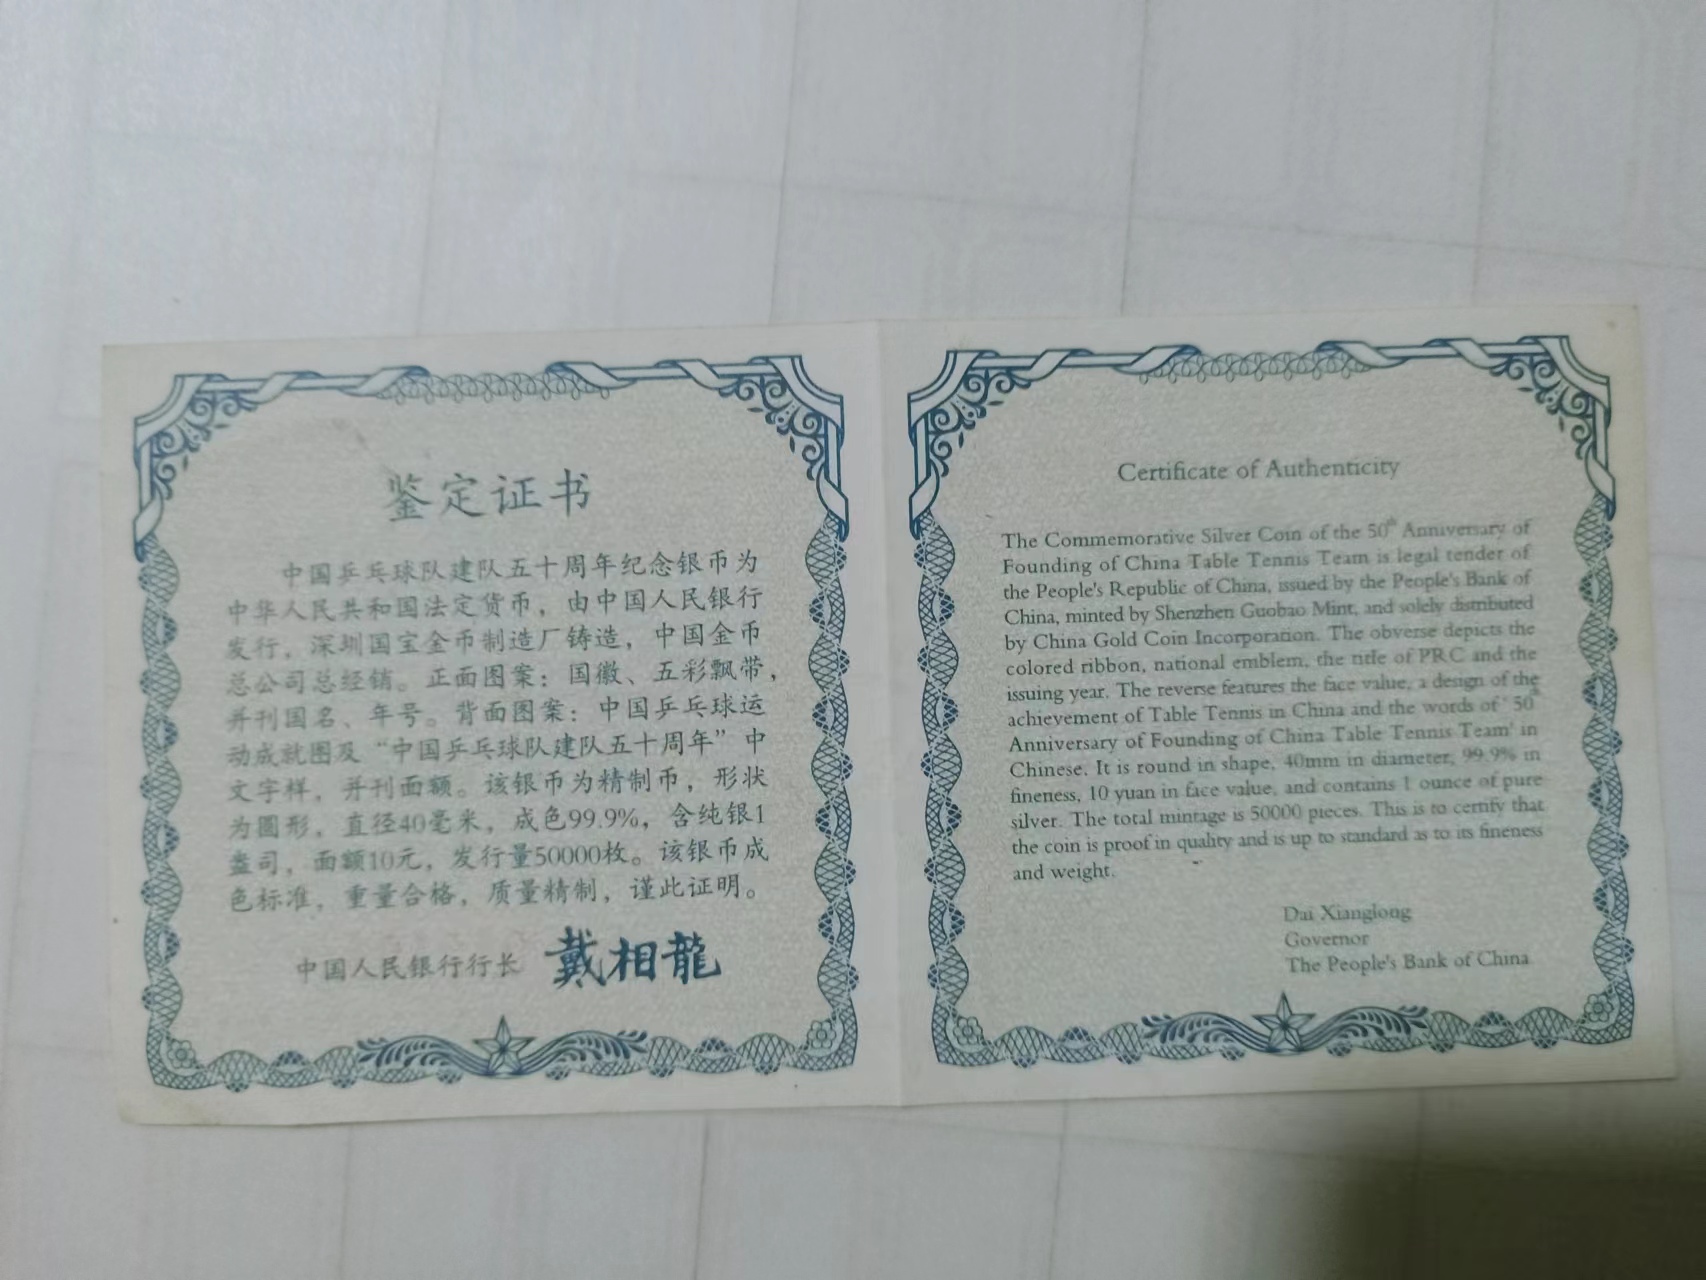 鉴定证书
中国乒乓球队建队五十周年纪念银币为
中华人民共和国法定货币，由中国人民银行
发行，深圳国宝金币制造厂铸造，中国金币
总公司总经销。正面图案：国徽、五彩飘带，
并刊国名、年号。背面图案：中国乒乓球运
动成就图及“中国乒乓球队建队五十周年”中
文字样，并刊面额。该银币为精制币，形状
为圆形，直径40毫米，成色99.9%，含纯银1
盎司，面额10元，发行量50000枚。该银币成
色标准，重量合格，质量精制，谨此证明。
中国人民银行行长 戴相龍
Certificate of Authenticity
The Commemorative Silver Coin of the 50th Anniversary of
Founding of China Table Tennis Team is legal tender of
the People's Republic of China, issued by the People's Bank of
China, minted by Shenzhen Guobao Mint, and solely distributed
by China Gold Coin Incorporation. The obverse depicts the
colored ribbon, national emblem, the title of PRC and the
issuing year. The reverse features the face value, a design of the
achievement of Table Tennis in China and the words of ' 50th
Anniversary of Founding of China Table Tennis Team' in
Chinese. It is round in shape, 40mm in diameter, 99.9% in
fineness, 10 yuan in face value, and contains 1 ounce of pure
silver. The total mintage is 50000 pieces. This is to certify that
the coin is proof in quality and is up to standard as to its fineness
and weight.
Dai Xianglong
Governor
The People's Bank of China